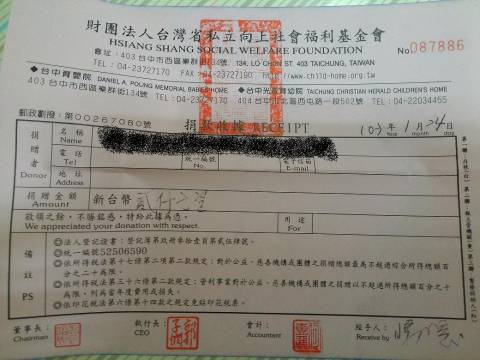 財團法人台灣省私立向上社會福利基金會
HSIANG SHANG SOCIAL WELFARE FOUNDATION
No 087886
會址：403 台中市西區樂群街134號, 134, LO CHUN ST. 403 TAICHUNG, TAIWAN
TEL：04-23727170 FAX：04-23727190 http://www.child-home.org.tw
台中育嬰院 DANIEL A. POUNG MEMORIAL BABIES HOME
403 台中市西區樂群街134號 TEL：04-23727170
台中光音育幼院 TAICHUNG CHRISTIAN HERALD CHILDREN'S HOME
404 台中市北區西屯路一段502號 TEL：04-22034455
郵政劃撥：第00267080號
捐款收據 RECEIPT
103年 1月 24日
year month day
捐贈者 Donor
姓名 Name
電話 Tel
統一編號 No.
電子信箱 E-mail
地址 Address
捐贈金額 Amount
新台幣 貳仟元
敬領之餘，不勝銘感，特給此據為憑。
We appreciated your donation with respect.
用途 For
備註 PS
◎法人登記證書：登記簿第玖冊參拾壹頁第貳伍肆號。
◎統一編號52506590
◎依所得稅法第十七條第二項第二款規定：對於公益、慈善機構或團體之捐贈總額最高不超過綜合所得總額百分之二十為限。
◎依所得稅法第三十六條第二款規定：營利事業對於公益、慈善機構或團體之捐贈以不超過所得總額百分之十為限，列為當年度費用或損失。
◎依印花稅法第六條第十四款之規定免貼印花稅票。
董事長： Chairman
執行長： CEO
會計： Accountant
經手人： Receive by